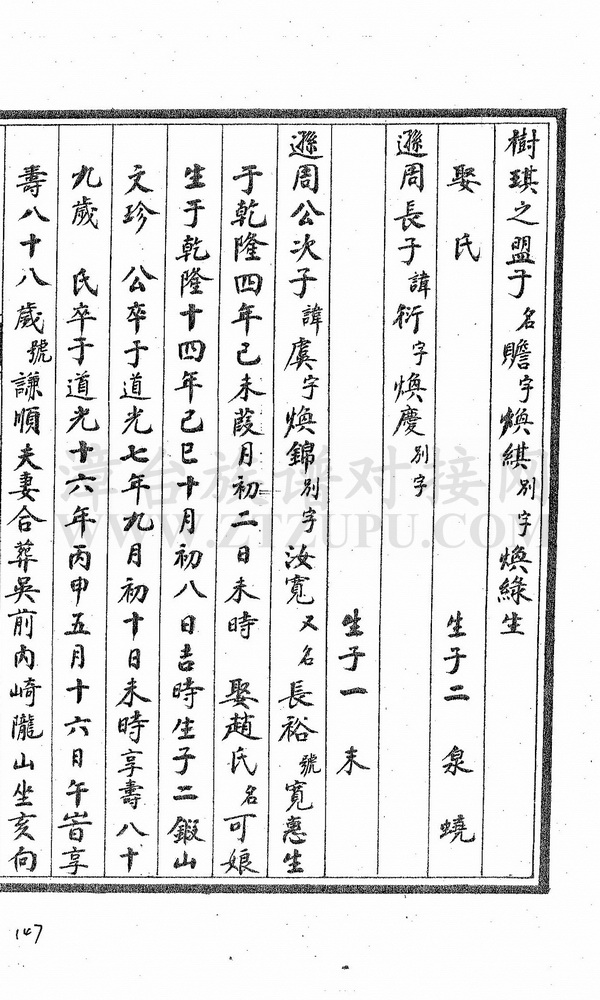 樹琪之盟子名贍字煥綨別字煥綠生
娶氏 生子二 泉 蟯
遜周長子諱衍字煥慶別字
生子一 未
遜周公次子諱虞字煥錦別字汝寬又名長裕號寬惠生
于乾隆四年己未葭月初二日未時 娶趙氏名可娘
生于乾隆十四年己巳十月初八日吉時生子二 鍜山
文珍 公卒于道光七年九月初十日未時享壽八十
九歲 氏卒于道光十六年丙申五月十六日午時享
壽八十八歲號謙順夫妻合葬吳前內崎隴山坐亥向
漳台族谱对接网
WWW.ZTZUPU.COM
147